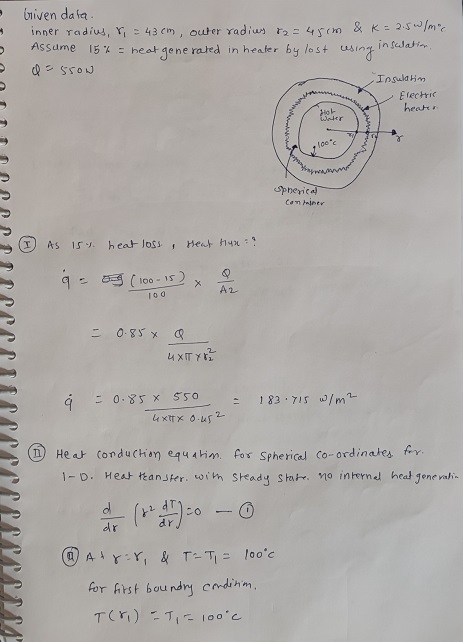 Given data.
inner radius, r₁ = 43 cm, outer radius r₂ = 45 cm & K = 2.5 w/m°c
Assume 15% = heat generated in heater by lost using insulation.
Q = 550W
Insulation
Electric
heater
Hot
Water
100°c
r
spherical
container
I As 15%. heat loss, Heat flux = ?
q̇ = (100-15)/100 × Q/A2
= 0.85 × Q/(4×π×r₂²)
q̇ = 0.85 × 550/(4×π×0.45²) = 183.715 w/m²
II Heat conduction equation for spherical co-ordinates for.
1-D. Heat transfer. with steady state. no internal heat generati
d/dr (r² dT/dr) = 0 — ①
At r=r₁ & T=T₁ = 100°c
for first boundry condition.
T(r₁) = T₁ = 100°c